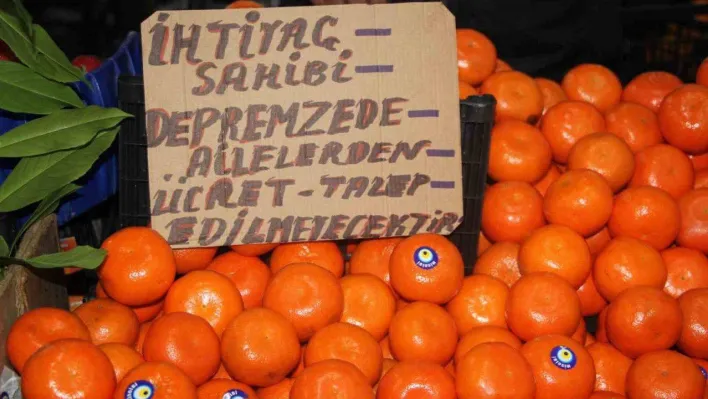 İHTİYAÇ –
SAHİBİ –
DEPREMZEDE –
AİLELERDEN –
ÜCRET - TALEP –
EDİLMEYECEKTİR